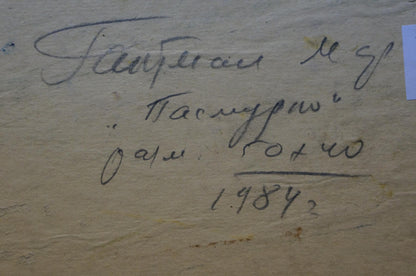 Гайтман М
"Пасмурно"
разм. 50х40
1984г